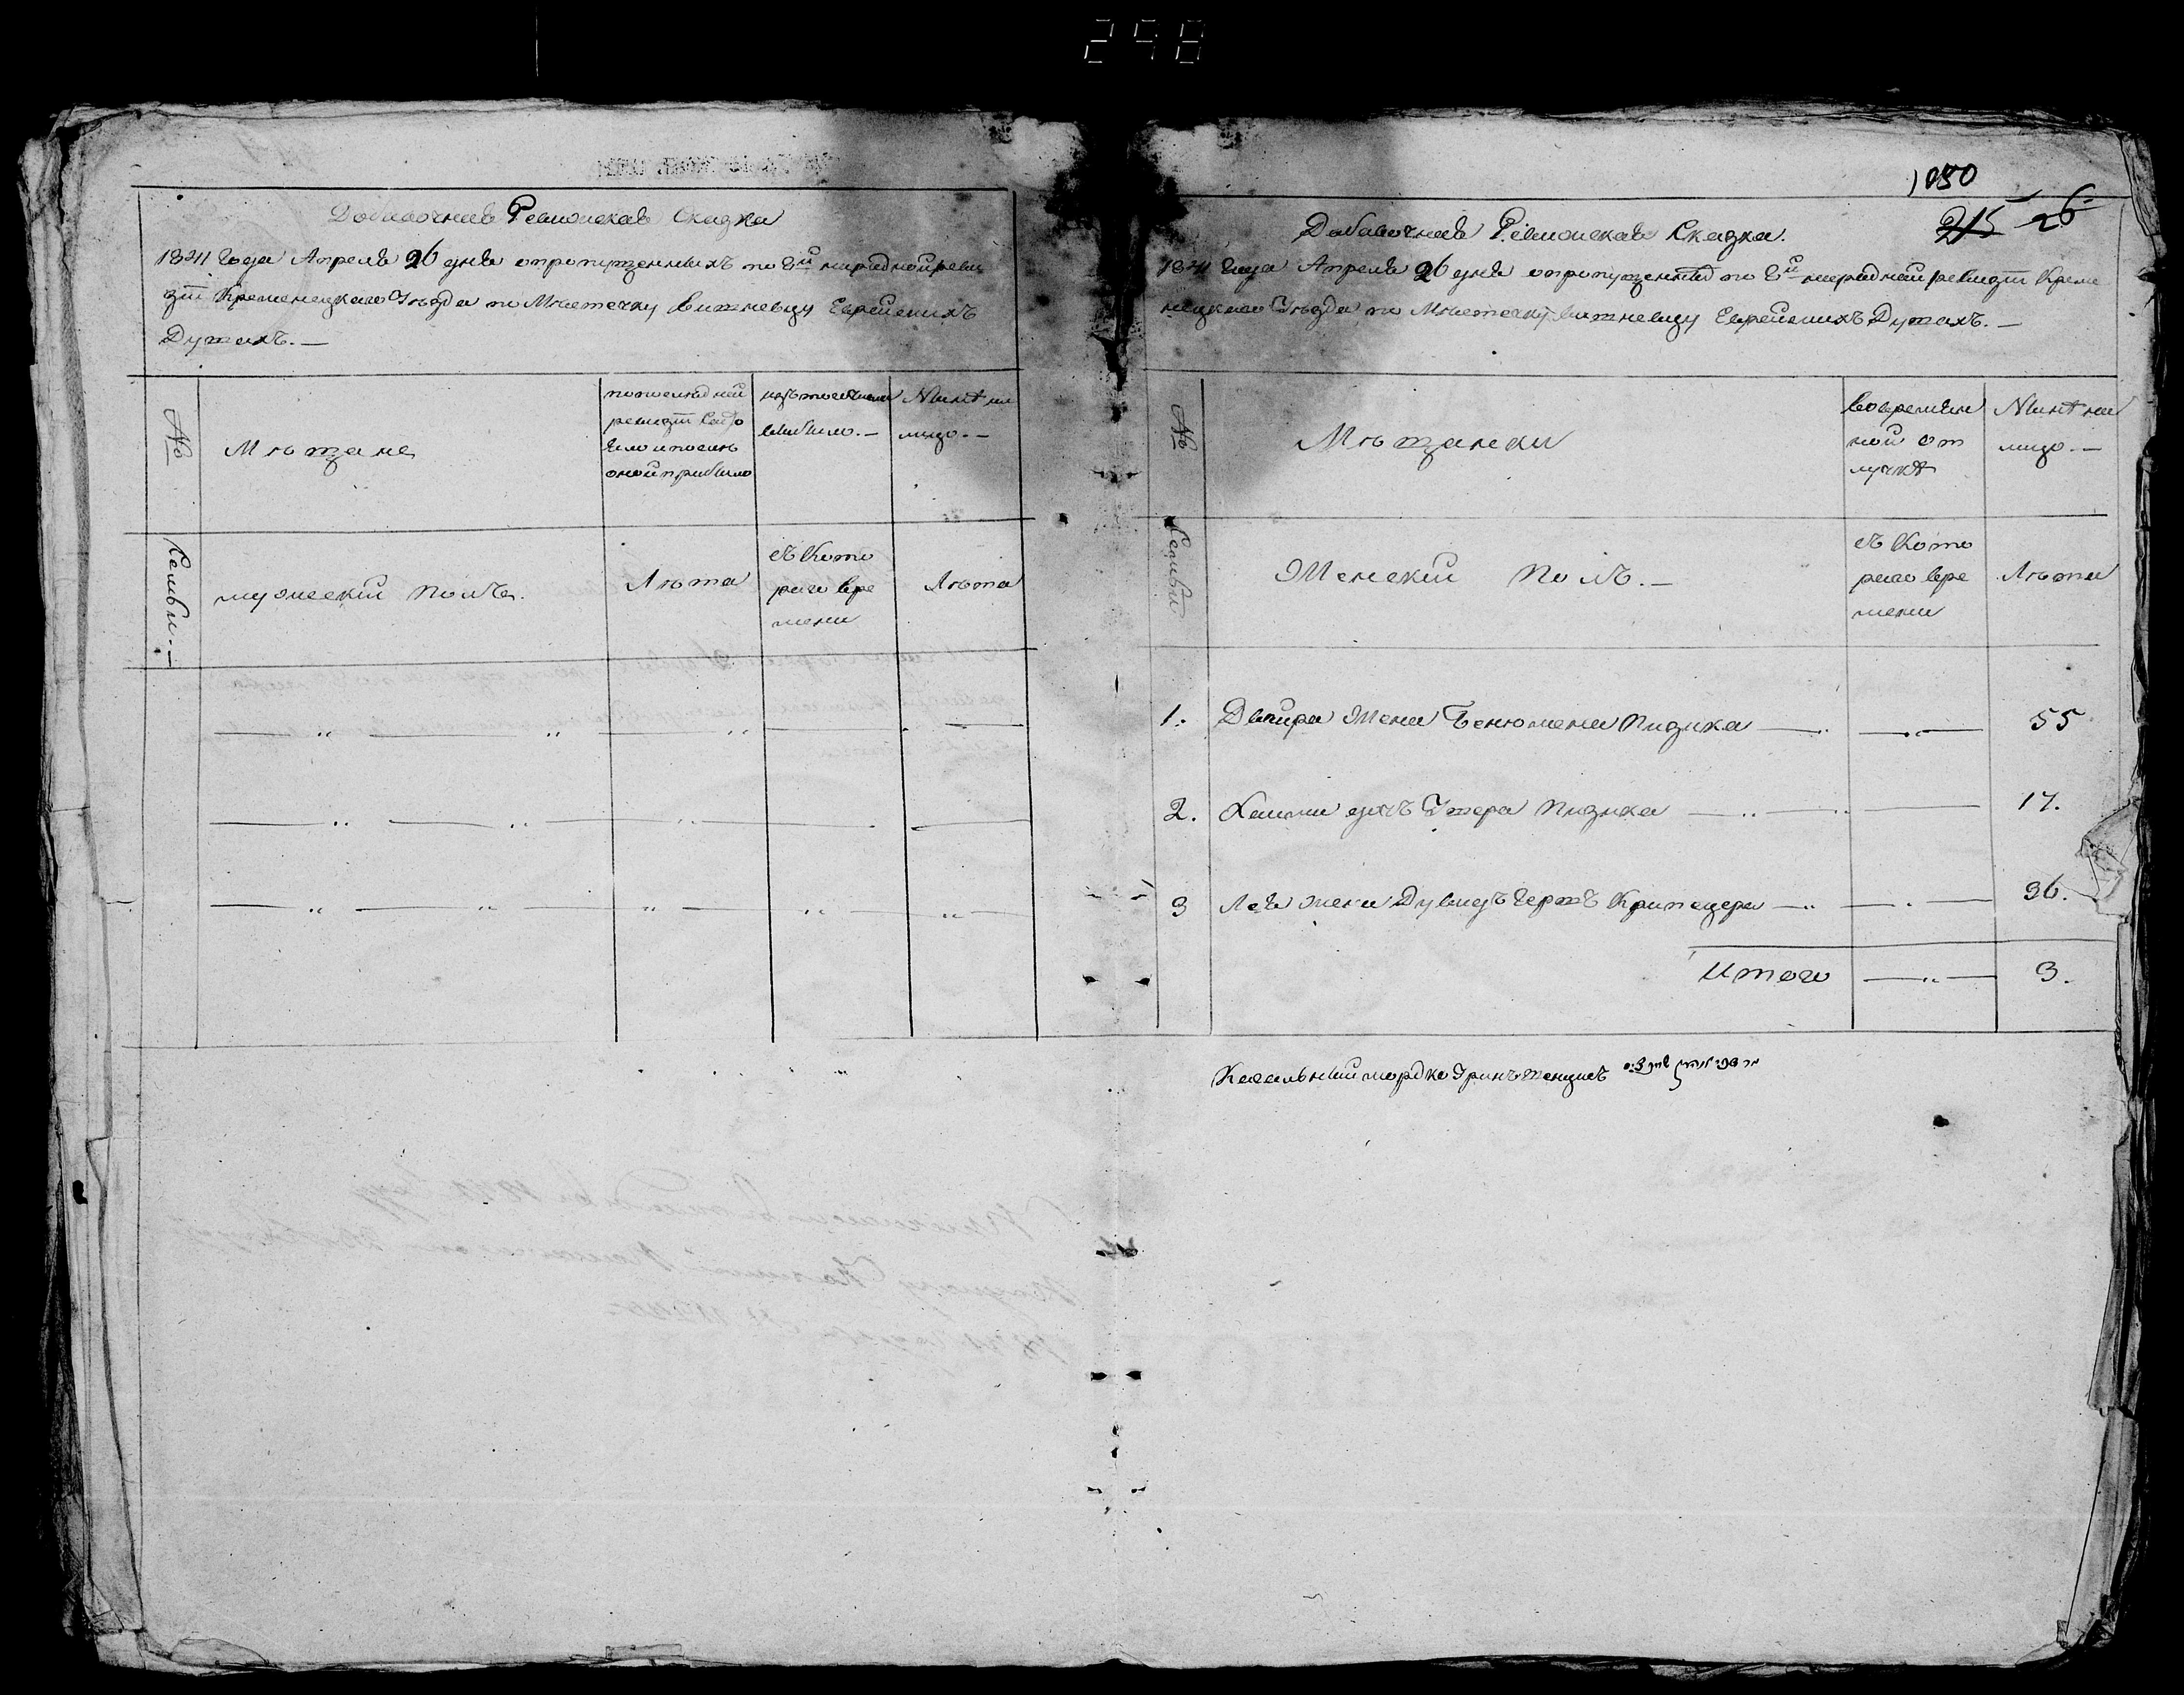 298
Добавочная Ревизская Сказка
1841 года Апреля 26 дня о пропущенныхъ по 8й народной реви
зіи Кременецкаго Уѣзда по Мѣстечку Вишневцу Еврейскихъ
Душахъ. —
№
Мѣщане
по последней
ревизіи состо
яло и после
оной прибыло
изъ того числа
выбыло. —
Нынѣ на
лицо. —
Семьи. —
мужескій полъ.
Лѣта
съ Кото
раго вре
мени
Лѣта
1050
215 26
Добавочная Ревизская Сказка.
1841 года Апреля 26 дня о пропущенныхъ по 8й народной ревизіи Креме
нецкаго Уѣзда по Мѣстечку Вишневцу Еврейскихъ Душахъ. —
№
Мѣщански
во времѣн
ной от
лучкѣ
Нынѣ на
лицо. —
Семьи
Женскій полъ. —
съ Кото
раго вре
мени
Лѣта
1. Двойра Жена Бенюмена Пизика 55
2. дочъ Пизика 17.
3 Лея жена Дувидъ Гершъ 36.
Итого 3.
Кагальный мордко